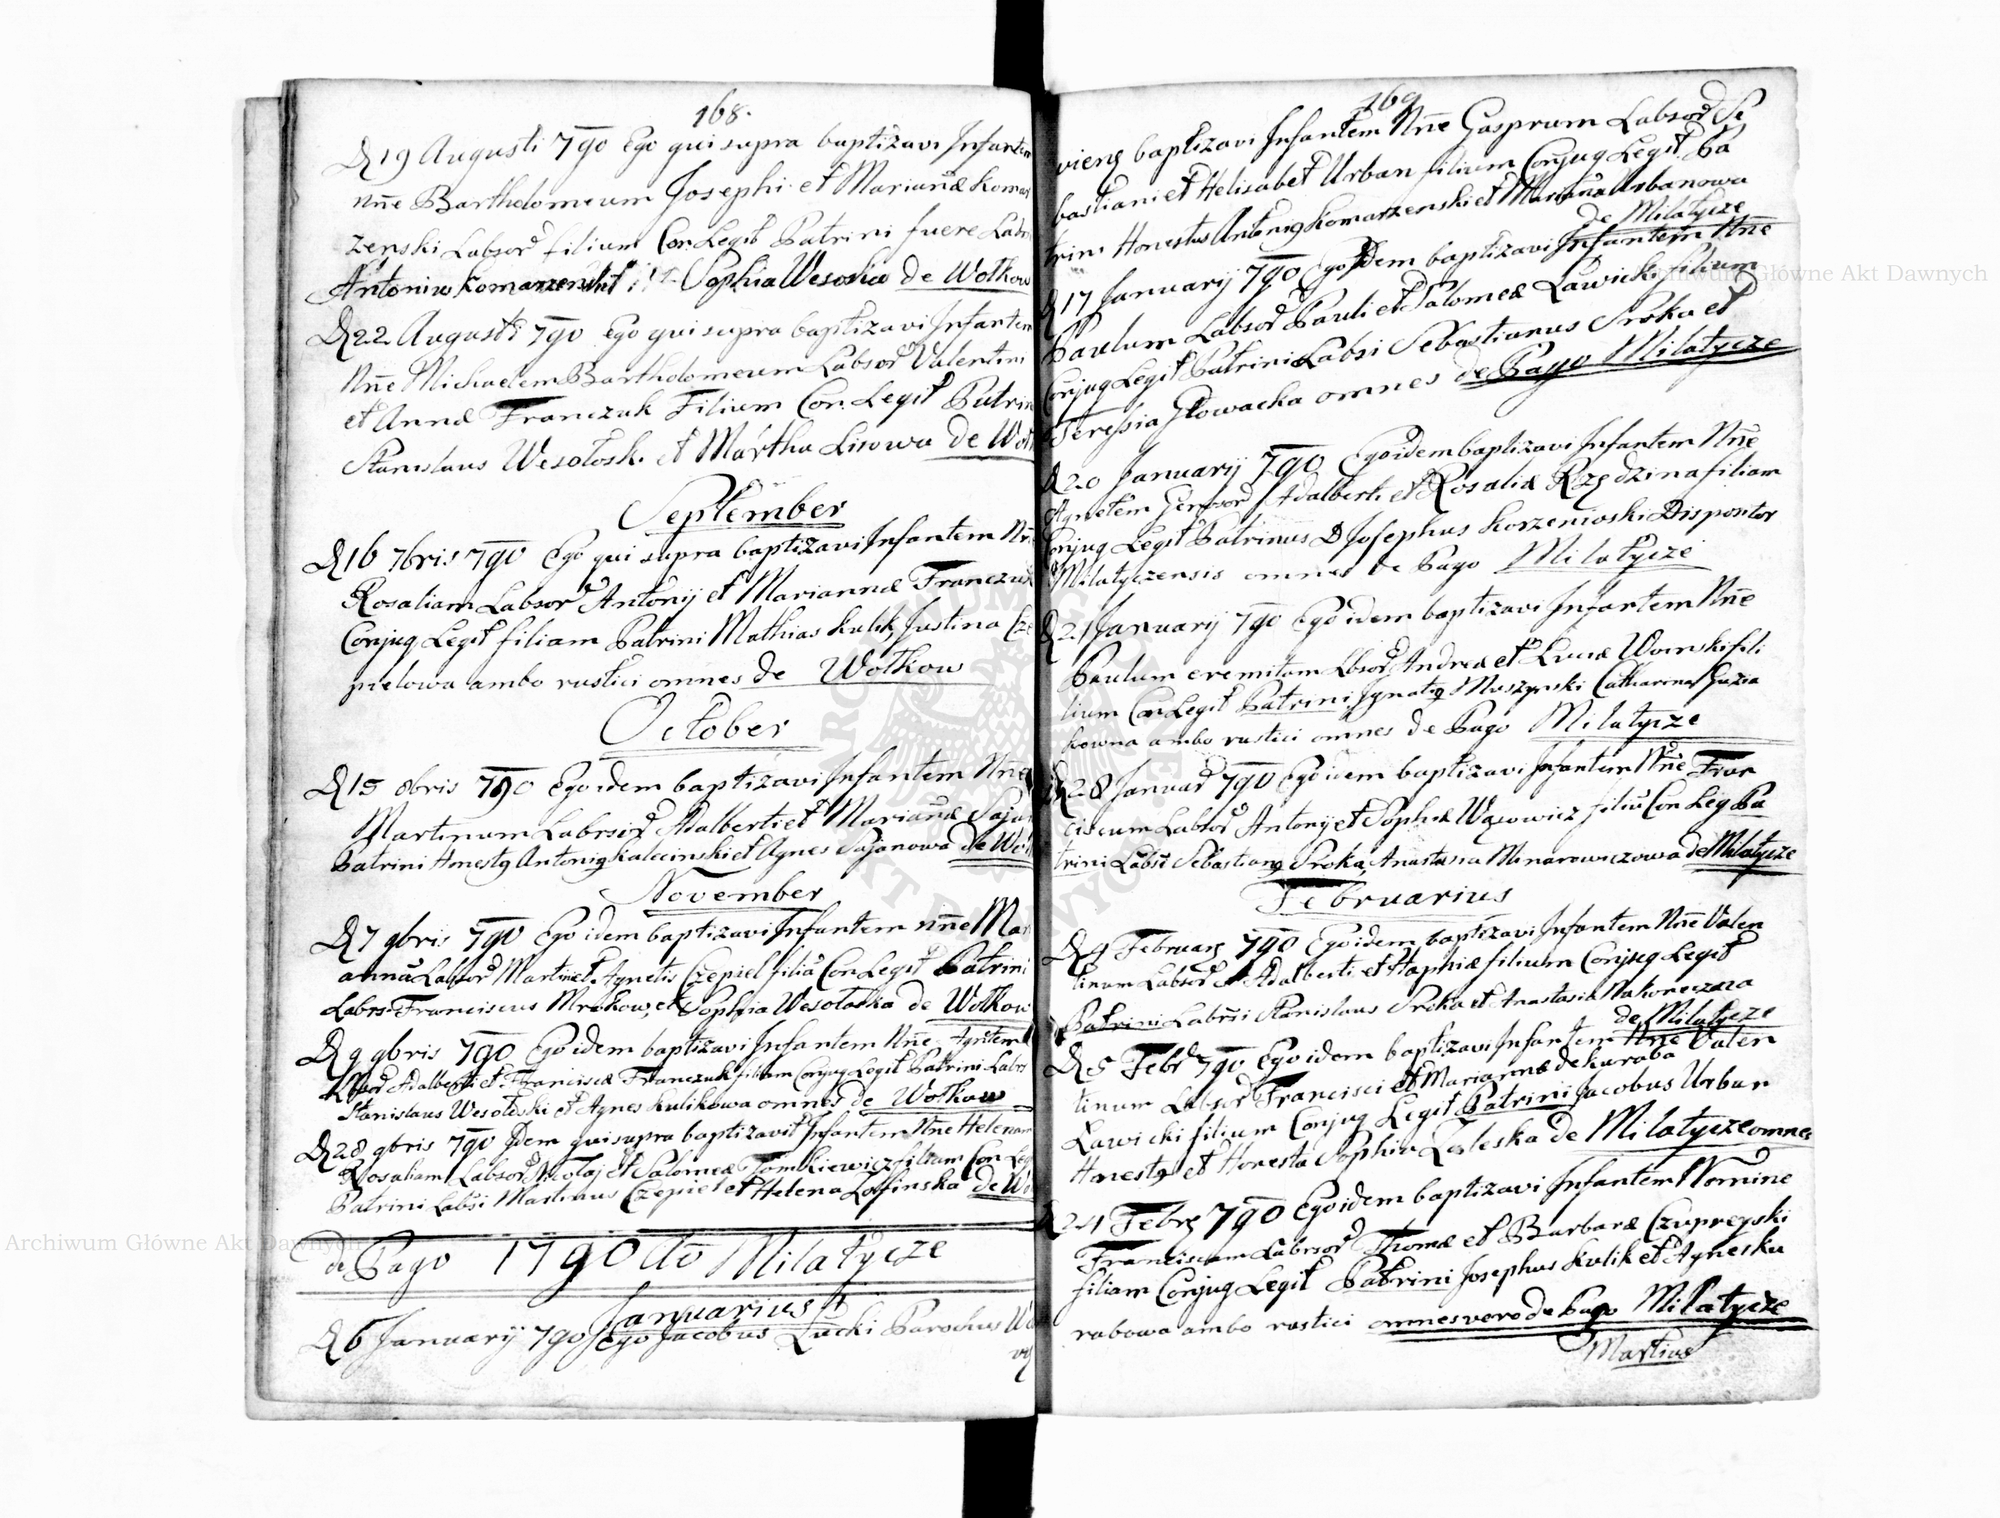 168.
D 19 Augusti 790 Ego qui supra baptizavi Infantem
Nñe Bartholomeum Josephi et Mariañæ Komar
zenski Labsor filium Con Legit Patrini fuere Labr
Antoniu Komarzenski Sophia Wesoska de Wołkow
D 22 Augusti 790 Ego qui supra baptizavi Infantem
Nñe Michaelem Bartholomeum Labsor Valentini
et Annæ Franczuk Filium Con: Legit Patrin
Stanislaus Wesołosk. et Martha Lisowa de Woł
September
D 16 7bris 790 Ego qui supra baptizavi Infantem Nñ
Rosaliam Labsor Antonij et Mariannæ Franczuk
Conjug Legit filiam Patrini Mathias Kulik, Justina Cze
pielowa ambo rustici omnes de Wołkow
October
D 15 8bris 790 Ego idem baptizavi Infantem Nñe
Martinum Labrsor Adalberti et Mariañæ Saja
Patrini Honestq Antoniq Kaliecinski et Agnes Sajanowa de Woł
November
D 7 9bris 790 Ego idem baptizavi Infantem nñe Mar
annã Labsor Martini et Agnetis Czepiel filiã Con Legit Patrini
Labrs Franciscus Mrokow, et Sophia Wesołoska de Wołkow
D 9 9bris 790 Ego idem baptizavi Infantem Nñe Agnetem
Adalberti et Franciscæ Franczuk filiam Conjug Legit Patrini Labrs
Stanislaus Wesołoski et Agnes Kulikowa omnes de Wołkow
D 28 9bris 790 Idem qui supra baptizavit Infantem Nñe Helenam
Rosaliam Labsor Nicolaj et Salomeæ Tomkiewicz filiam Con Leg
Patrini Labsi Martinus Czepiel et Helena Łosinska de Wo
de Pago 1790 dto Milatycze
Januarius
D 6 Januarij 790 Ego Jacobus Łucki Parochus Wo
169
vienq baptizavi Infantem Nñe Gasprum Labsor Se
bastiani et Helisabet Urban filium Conjug Legit Pa
trini Honestus Antoniq Komarzenski et Mariana Urbanowa
de Milatycze
D 17 January 790 Ego Idem baptizavi Infantem Nñe
Paulum Labsor Pauli et Salomeæ Ławicki filium
Conjug Legit Patrini Labsi Sebastianus Sroka et
Teressia Głowacka omnes de Pago Milatycze
D 20 Januarij 790 Ego idem baptizavi Infantem Nñe
Agnetem Adalberti et Rosaliæ Rzędzina filiam
Conjug Legit Patrinus D Josephus Korzeniowski Dispontor
Milatyczensis omnes de Pago Milatycze
D 21 January 790 Ego idem baptizavi Infantem Nñe
Paulum eremitam Andreæ et Luciæ Woinski fili
lium Con Legit Patrini Ignatq Muszynski Catharina Guzia
kowna ambo rustici omnes de Pago Milatycze
D 28 Januar 790 Ego idem baptizavi Infantem Nñe Fran
ciscum Labsor Antonij et Sophiæ Wąsowicz filiũ Con Leg Pa
trini Labsi Sebastianq Sroka, Anastasia Mlinarowiczowa de Milatycze
Februarius
D 4 Februarq 790 Ego idem baptizavi Infantem Nñe Valen
tinum Labsor Adalberti et Haphiæ filium Conjug Legit
Patrini Labrsi Stanislaus Sroka et Anastasia Nakoneczna
de Milatycze
D 5 Febr 790 Ego idem baptizavi Infantem Nñe Valen
tinum Labsor Francisci et Mariannæ de Karaba
Ławicki filium Conjug Legit Patrini Jacobus Urban
Honestq et Honesta Sophia Zaleska de Milatycze omnes
D 24 Febrq 790 Ego idem baptizavi Infantem Nomine
Franciscam Labrsor Thomæ et Barbaræ Czupreyski
filiam Conjug Legit Patrini Josephus Kulik et Agneska
rabowa ambo rustici omnes vero de Pago Milatycze
Martius
Archiwum Główne Akt Dawnych
Archiwum Główne Akt Dawnych
ARCHIWUM GŁÓWNE AKT DAWNYCH